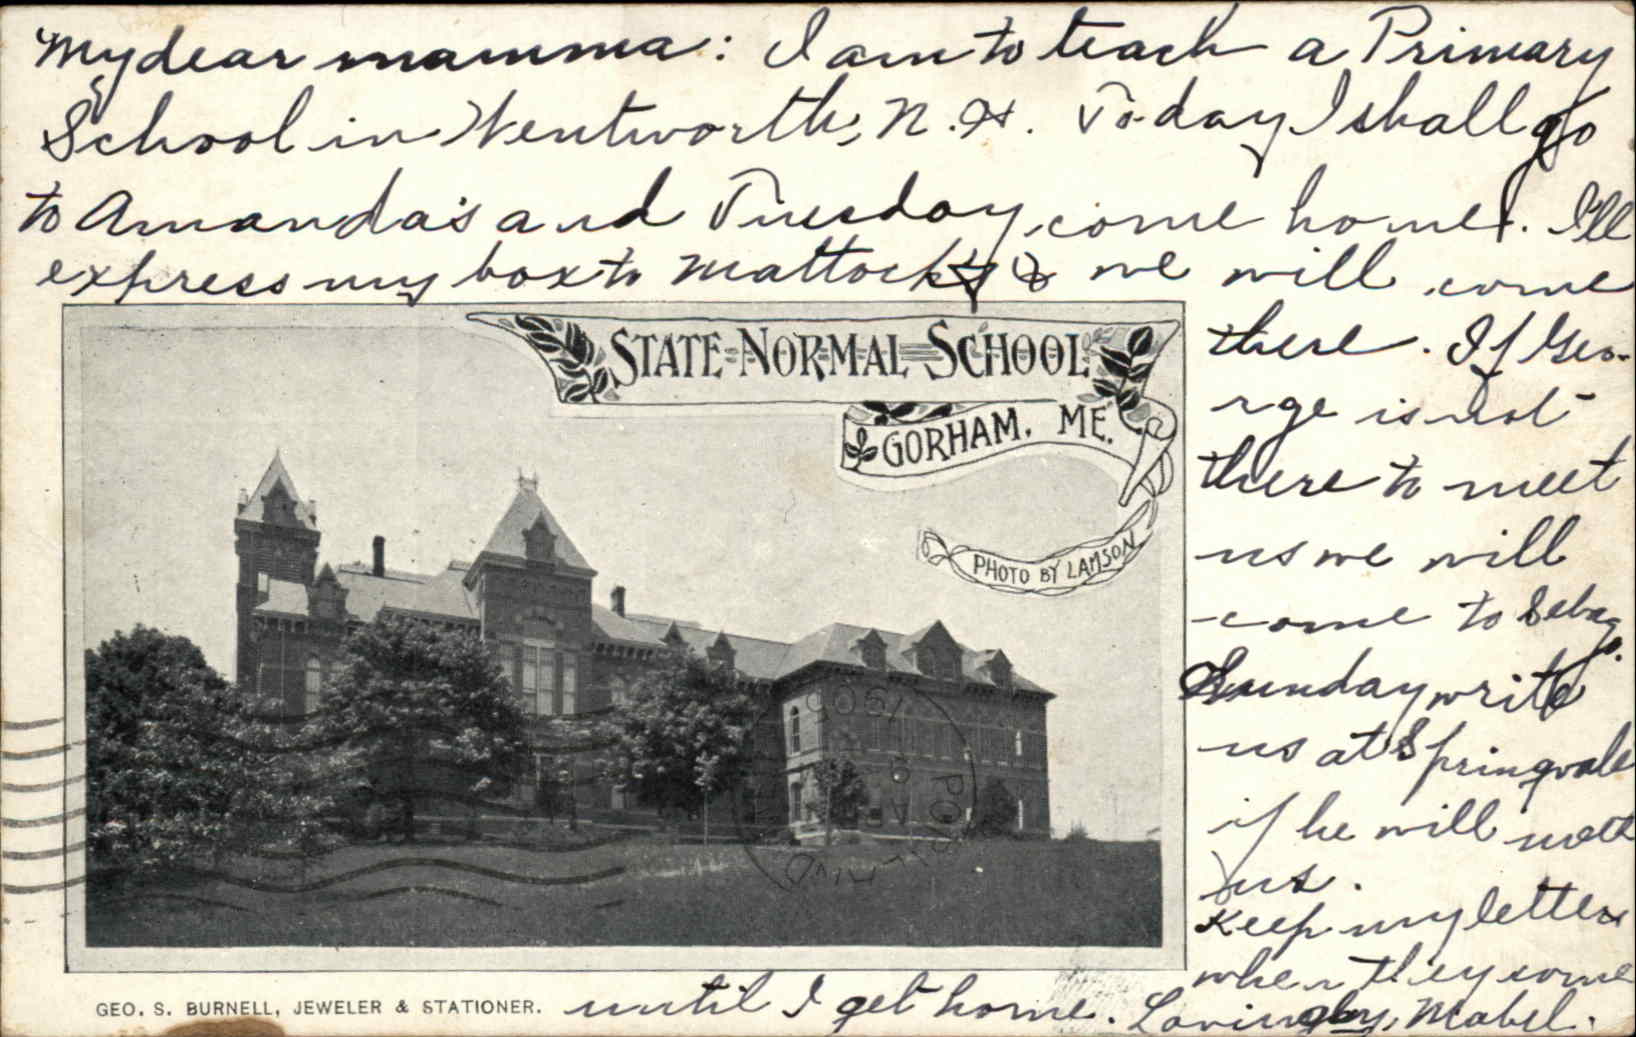 My dear mamma: I am to teach a Primary
School in Wentworth, N.H. To-day I shall go
to Amanda's and Tuesday come home. I'll
express my box to Mattocks & we will come
there. If Geo-
rge is not
there to meet
us we will
come to Sebago.
Sunday write
us at Springvale
if he will meet
us.
Keep my letters
when they come
until I get home. Lovingly, Mabel.
STATE NORMAL SCHOOL
GORHAM, ME.
PHOTO BY LAMSON
PORTLAND
1905
GEO. S. BURNELL, JEWELER & STATIONER.